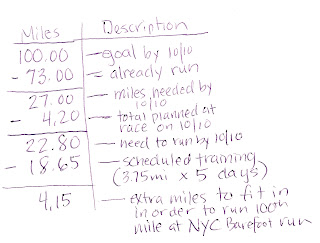 Miles Description
100.00 – goal by 10/10
- 73.00 – already run
27.00 – miles needed by 10/10
- 4.20 – total planned at race on 10/10
22.80 – need to run by 10/10
- 18.65 – scheduled training (3.75mi x 5 days)
4.15 – extra miles to fit in in order to run 100th mile at NYC Barefoot run